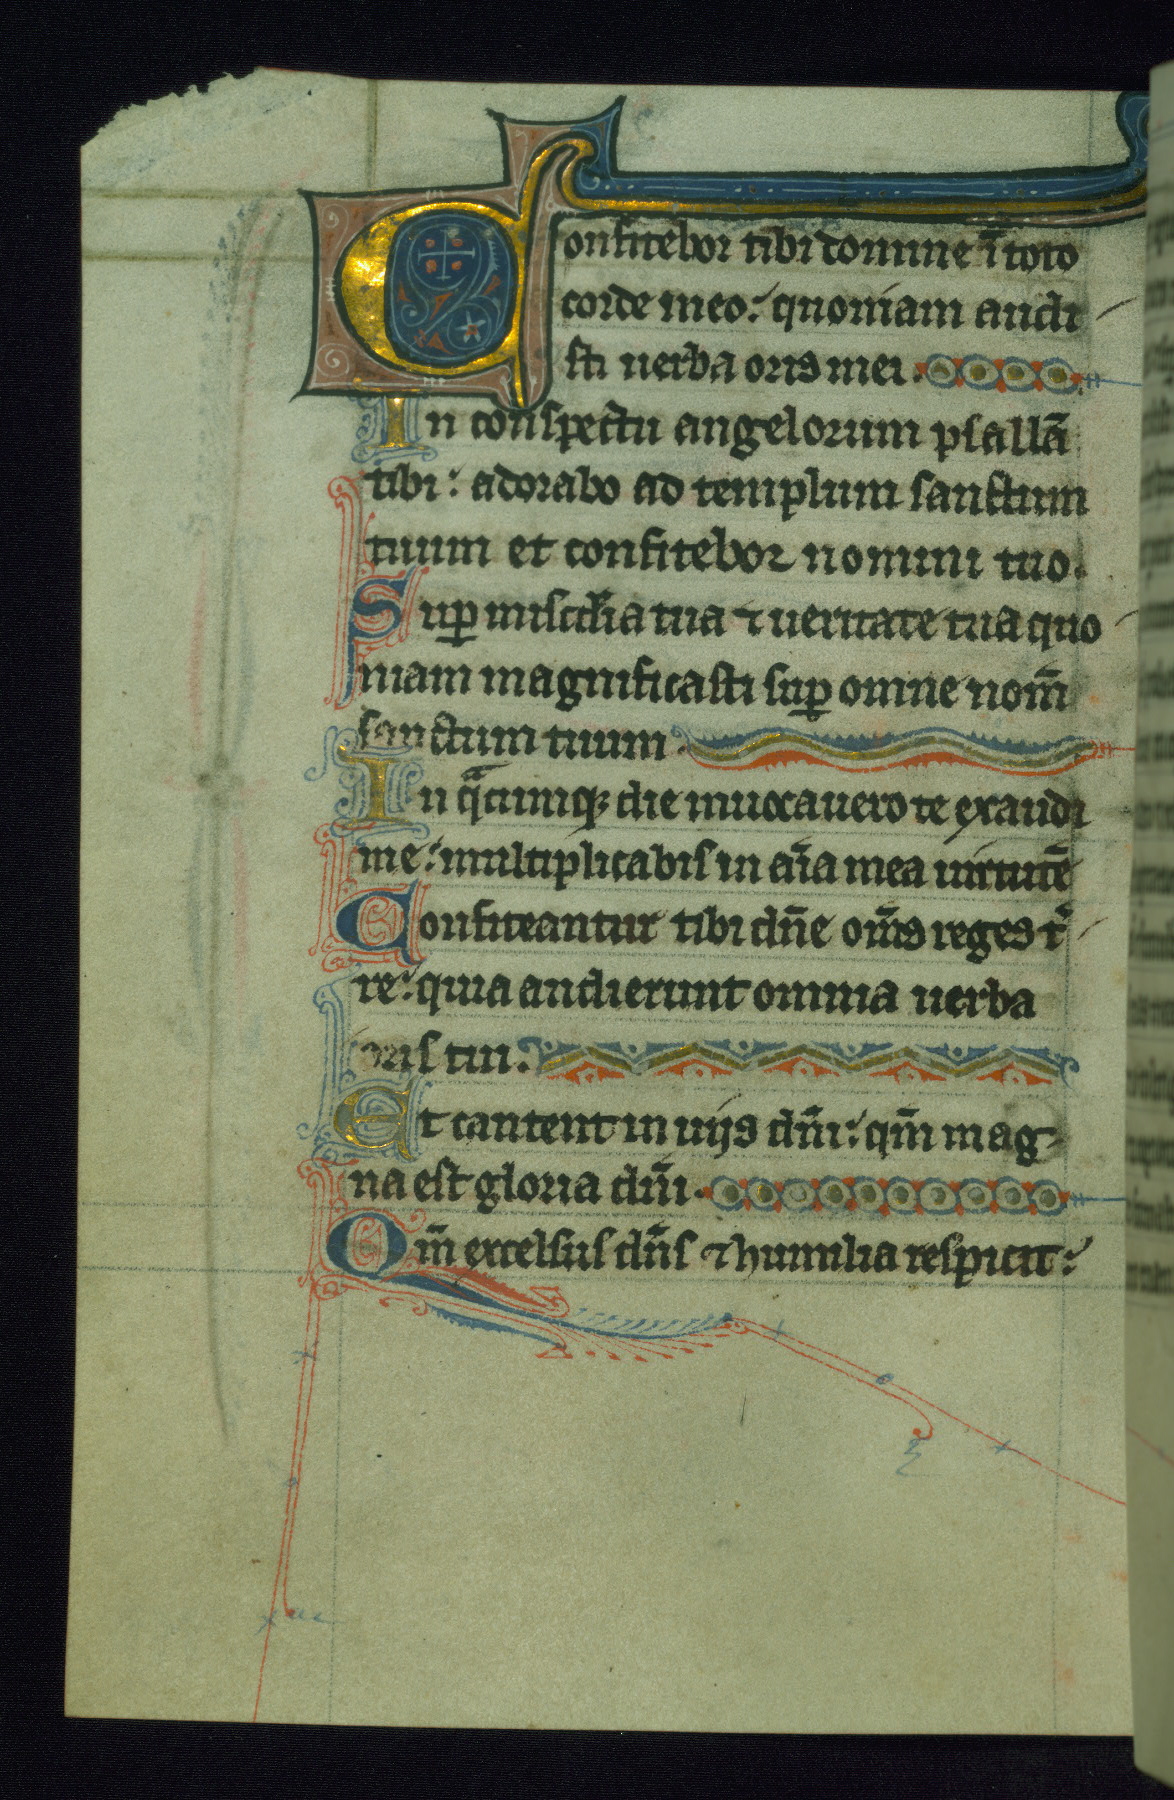 Confitebor tibi domine ī toto
corde meo: quoniam audi
sti uerba oris mei.
In conspectu angelorum psallā
tibi: adorabo ad templum sanctum
tuum et confitebor nomini tuo.
Sup̲ misc̄dia tua ⁊ ueritate tua quo
niam magnificasti sup̲ omne nom̄
sanctum tuum.
In q̄cumq; die inuocauero te exaudi
me: multiplicabis in aīa mea uirtutē
Confiteantur tibi dn̄e om̄s reges t̄r
re: quia audierunt omnia uerba
oris tui.
Et cantent in uijs dn̄i: qm̄ mag
na est gloria dn̄i.
Qm̄ excelsus dn̄s ⁊ humilia respicit: